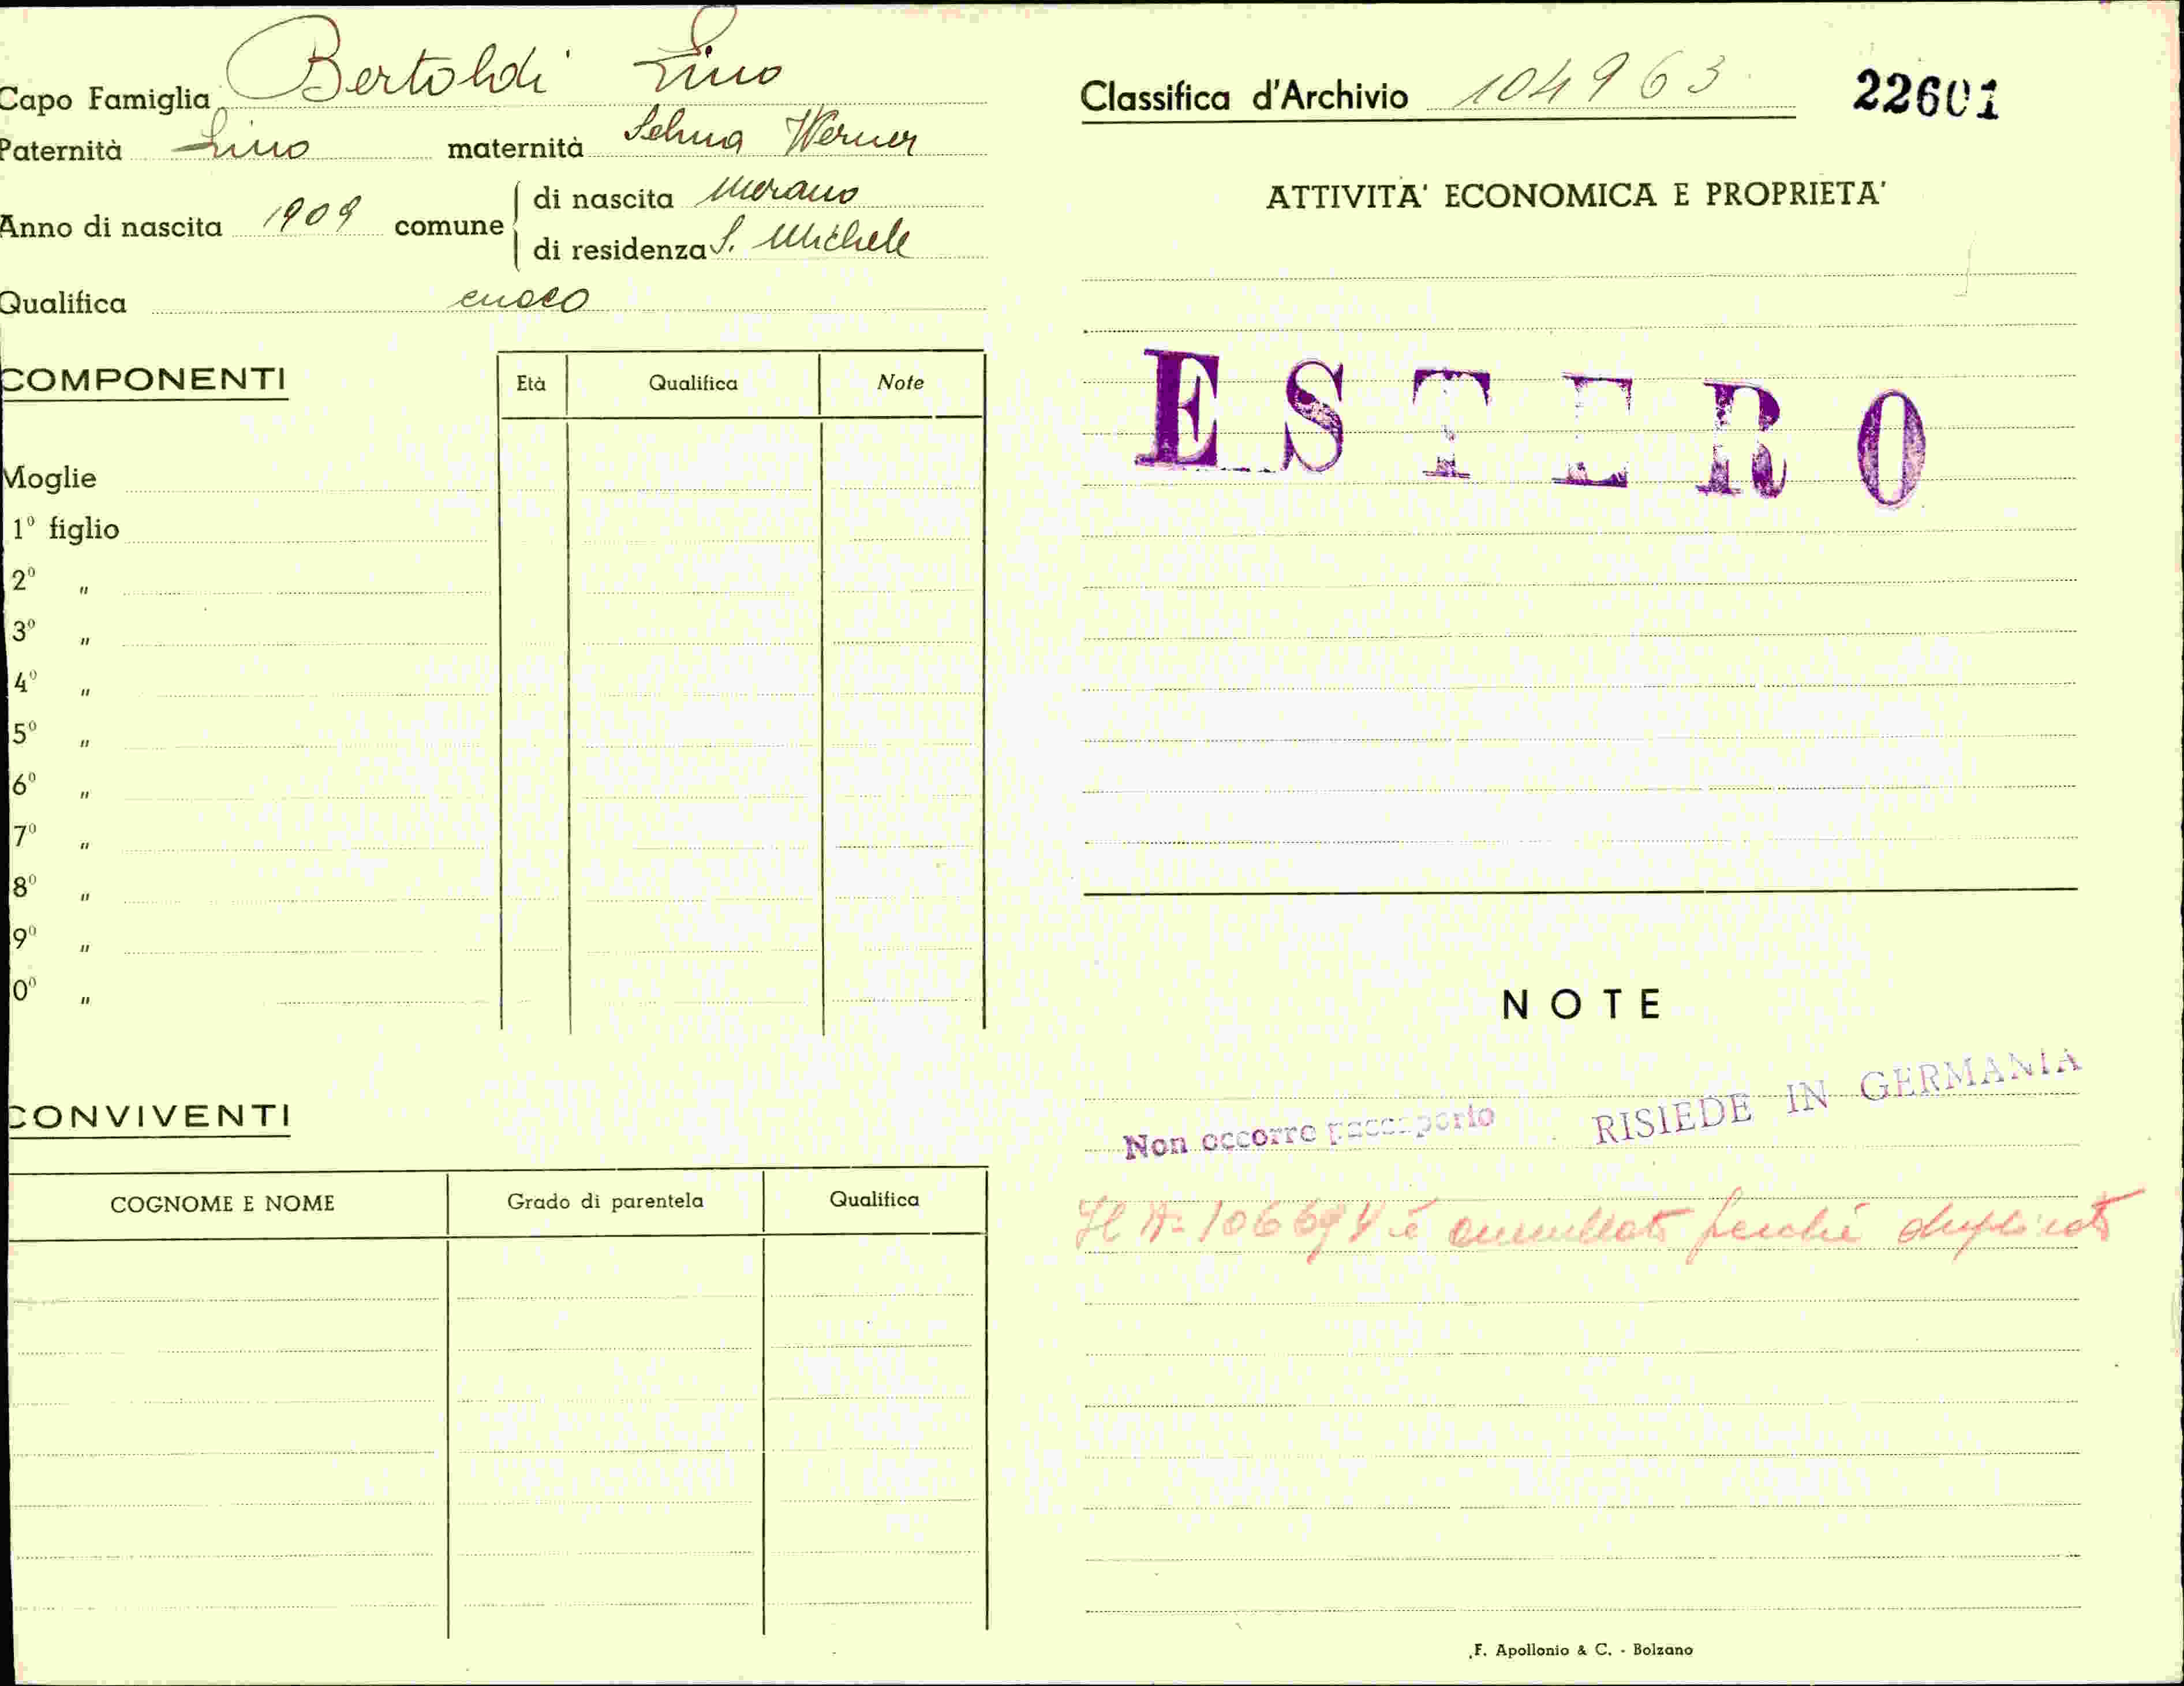 Capo Famiglia Bertoldi Lino
Paternità Lino maternità Selma Werner
Anno di nascita 1909 comune
di nascita Merano
di residenza S. Michele
Qualifica cuoco
COMPONENTI
Età Qualifica Note
Moglie
1º figlio
2º "
3º "
4º "
5º "
6º "
7º "
8º "
9º "
0º "
CONVIVENTI
COGNOME E NOME Grado di parentela Qualifica
Classifica d'Archivio 104963 22601
ATTIVITA' ECONOMICA E PROPRIETA'
ESTERO
NOTE
Non occorre passaporto RISIEDE IN GERMANIA
Il è annullato perché duplicato
F. Apollonio & C. - Bolzano